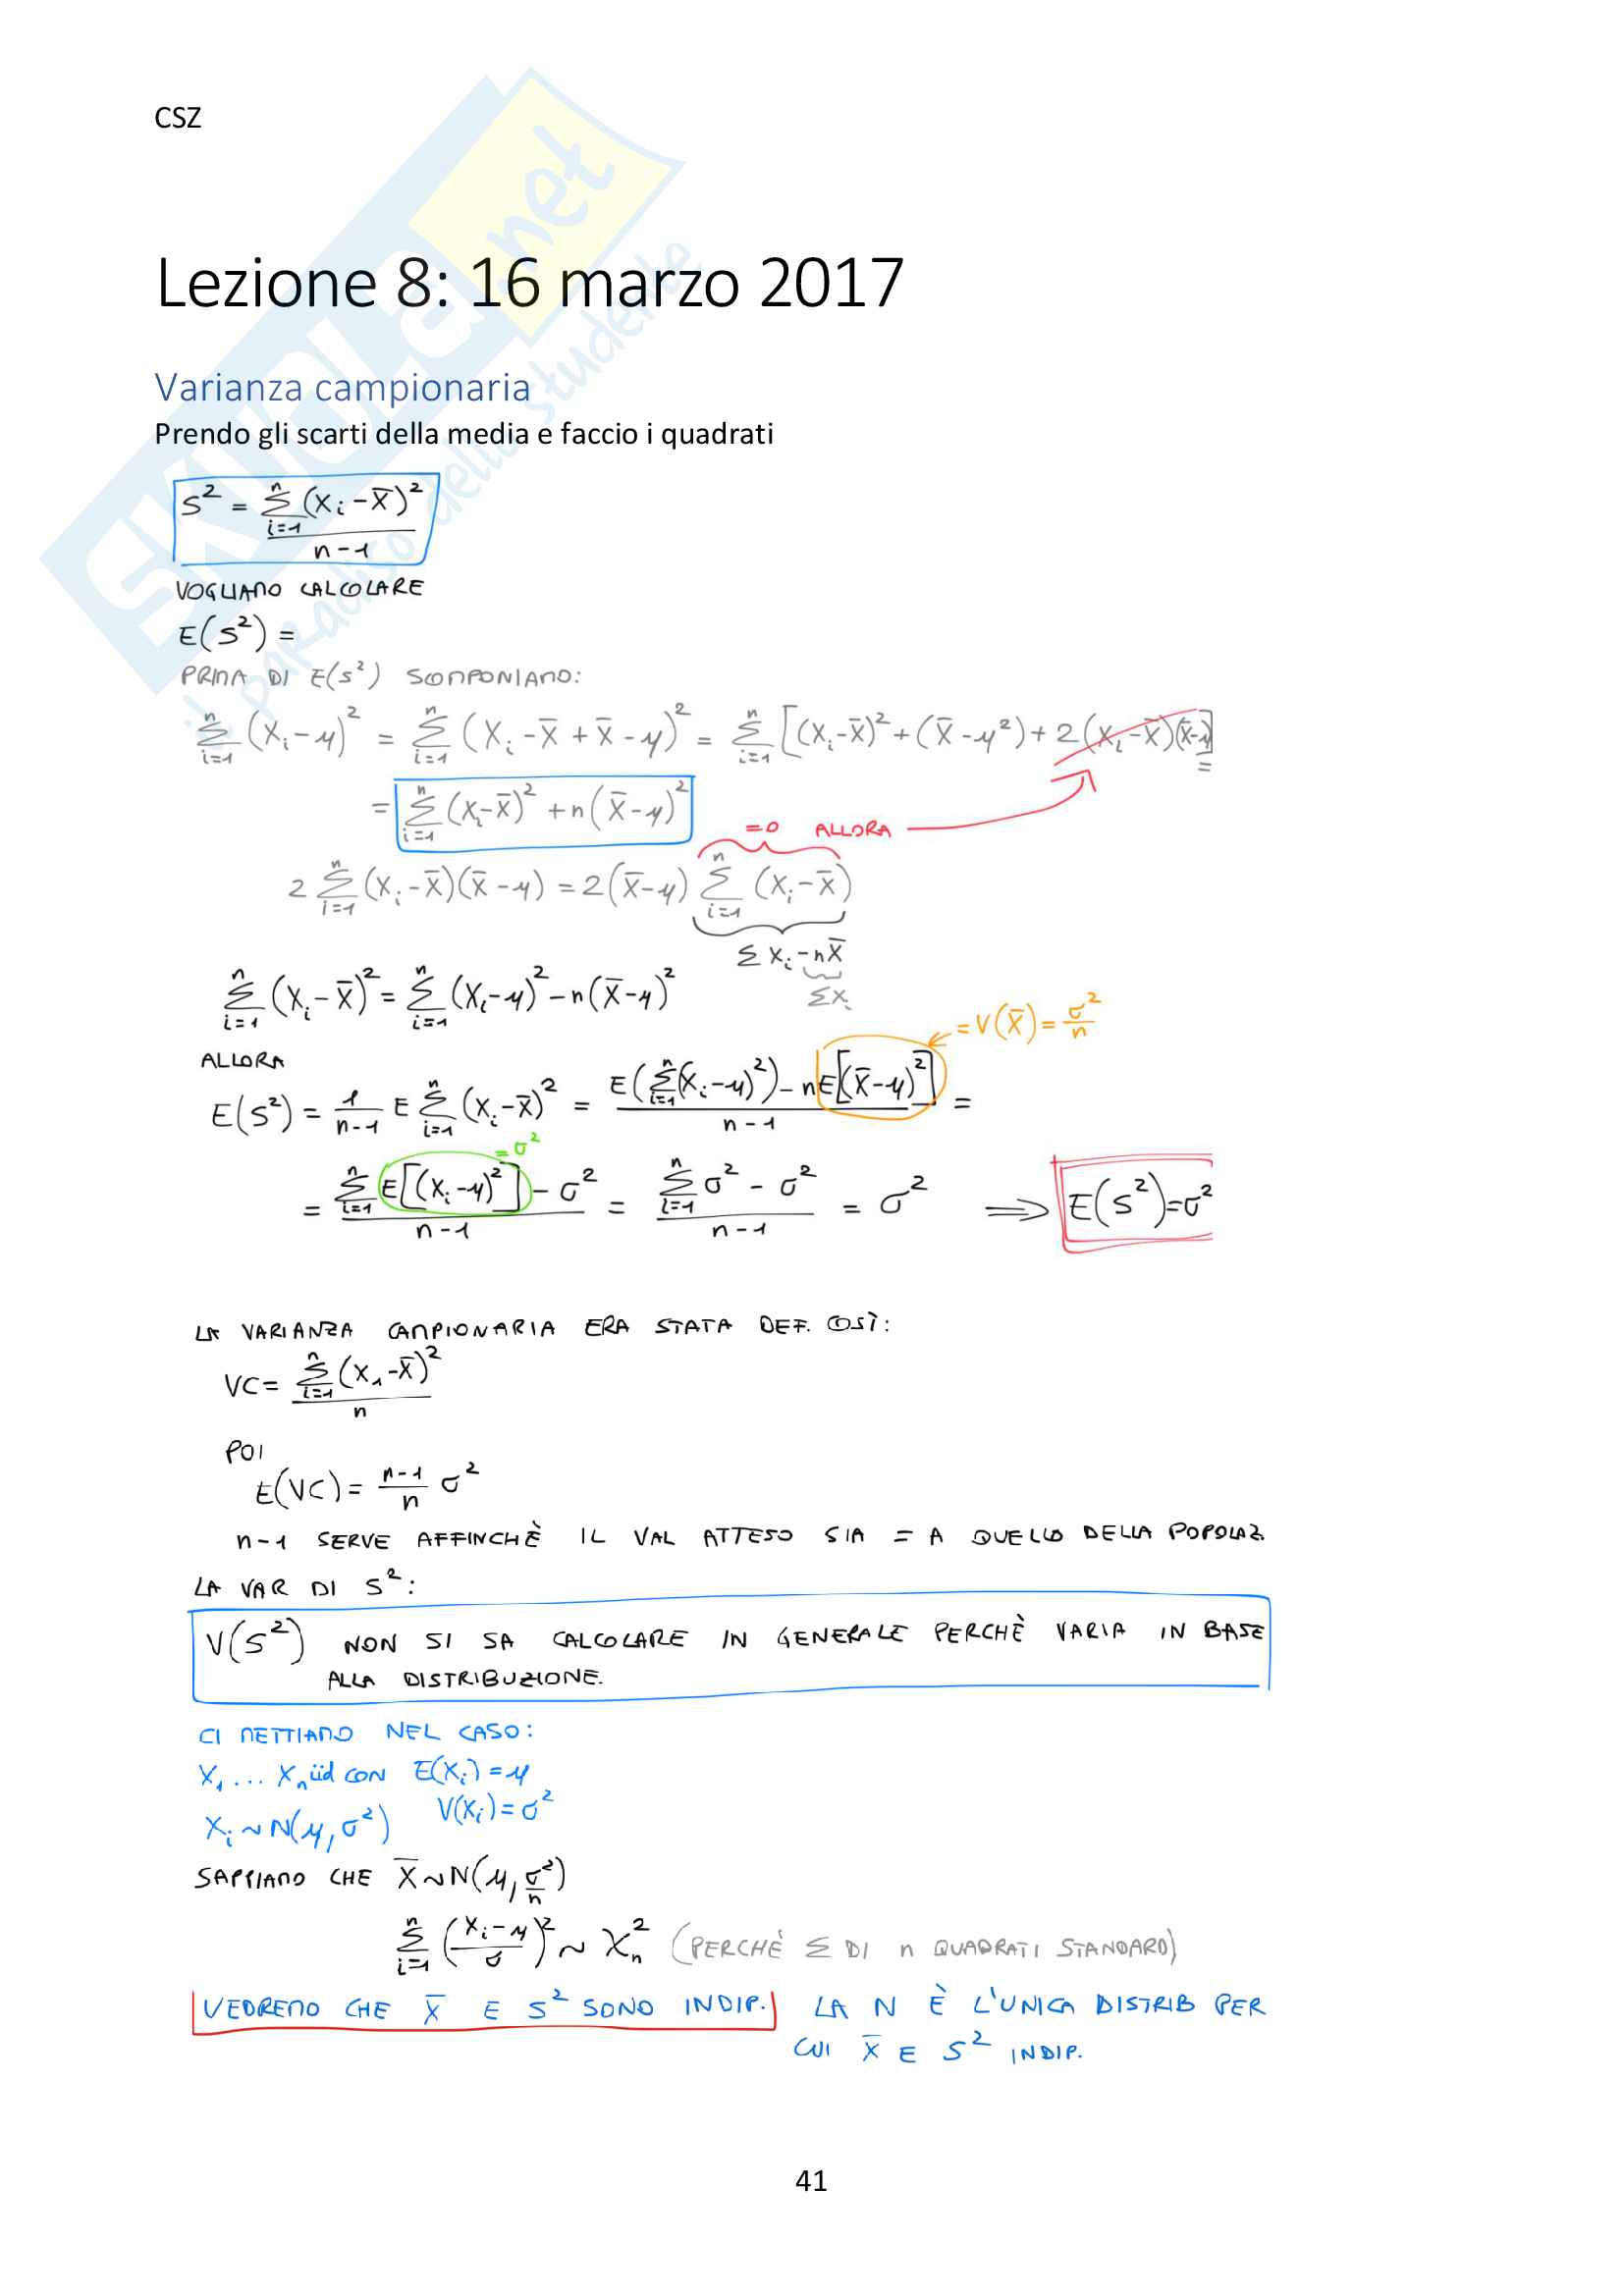 CSZ
SKUOLA.net
il paradiso dello studente
Lezione 8: 16 marzo 2017
Varianza campionaria
Prendo gli scarti della media e faccio i quadrati
S² = Σⁿᵢ₌₁ (Xᵢ - X̅)² / n-1
VOGLIAMO CALCOLARE
E(S²) =
PRIMA DI E(S²) SCOMPONIAMO:
Σⁿᵢ₌₁ (Xᵢ - μ)² = Σⁿᵢ₌₁ (Xᵢ - X̅ + X̅ - μ)² = Σⁿᵢ₌₁ [(Xᵢ - X̅)² + (X̅ - μ²) + 2(Xᵢ - X̅)(X̅ - μ)] =
= Σⁿᵢ₌₁ (Xᵢ - X̅)² + n(X̅ - μ)²
=0 ALLORA
2 Σⁿᵢ₌₁ (Xᵢ - X̅)(X̅ - μ) = 2(X̅ - μ) Σⁿᵢ₌₁ (Xᵢ - X̅)
Σ Xᵢ - nX̅
ΣXᵢ
Σⁿᵢ₌₁ (Xᵢ - X̅)² = Σⁿᵢ₌₁ (Xᵢ - μ)² - n(X̅ - μ)²
= V(X̅) = σ²/n
ALLORA
E(S²) = 1/n-1 E Σⁿᵢ₌₁ (Xᵢ - X̅)² = E(Σⁿᵢ₌₁ (Xᵢ - μ)²) - nE[(X̅ - μ)²] / n-1 =
= σ²
= Σⁿᵢ₌₁ E[(Xᵢ - μ)²] - σ² / n-1 = Σⁿᵢ₌₁ σ² - σ² / n-1 = σ² ⟹ E(S²) = σ²
LA VARIANZA CAMPIONARIA ERA STATA DEF. COSÌ:
VC = Σⁿᵢ₌₁ (X₁ - X̅)² / n
POI
E(VC) = n-1/n σ²
n-1 SERVE AFFINCHÈ IL VAL ATTESO SIA = A QUELLO DELLA POPOLAZ.
LA VAR DI S²:
V(S²) NON SI SA CALCOLARE IN GENERALE PERCHÈ VARIA IN BASE
ALLA DISTRIBUZIONE.
CI METTIAMO NEL CASO:
X₁ ... Xₙ iid CON E(Xᵢ) = μ
V(Xᵢ) = σ²
Xᵢ ~ N(μ, σ²)
SAPPIAMO CHE X̅ ~ N(μ, σ²/n)
Σⁿᵢ₌₁ (Xᵢ - μ / σ)² ~ χ²ₙ (PERCHÈ Σ DI n QUADRATI STANDARD)
VEDREMO CHE X̅ E S² SONO INDIP. LA N È L'UNICA DISTRIB PER
CUI X̅ E S² INDIP.
41